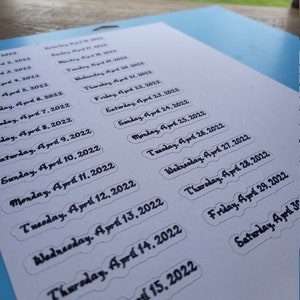 April 5, 2022
April 6, 2022
April 7, 2022
April 8, 2022
aturday, April 9, 2022
Sunday, April 10, 2022
Monday, April 11, 2022
Tuesday, April 12, 2022
Wednesday, April 13, 2022
Thursday, April 14, 2022
April 15, 2022
Saturday, April 16, 2022
Sunday, April 17, 2022
Monday, April 18, 2022
Tuesday, April 19, 2022
Wednesday, April 20, 2022
Thursday, April 21, 2022
Friday, April 22, 2022
Saturday, April 23, 2022
Sunday, April 24, 2022
Monday, April 25, 2022
Tuesday, April 26, 2022
Wednesday, April 27, 2022
Thursday, April 28, 2022
Friday, April 29, 2022
Saturday, April 30